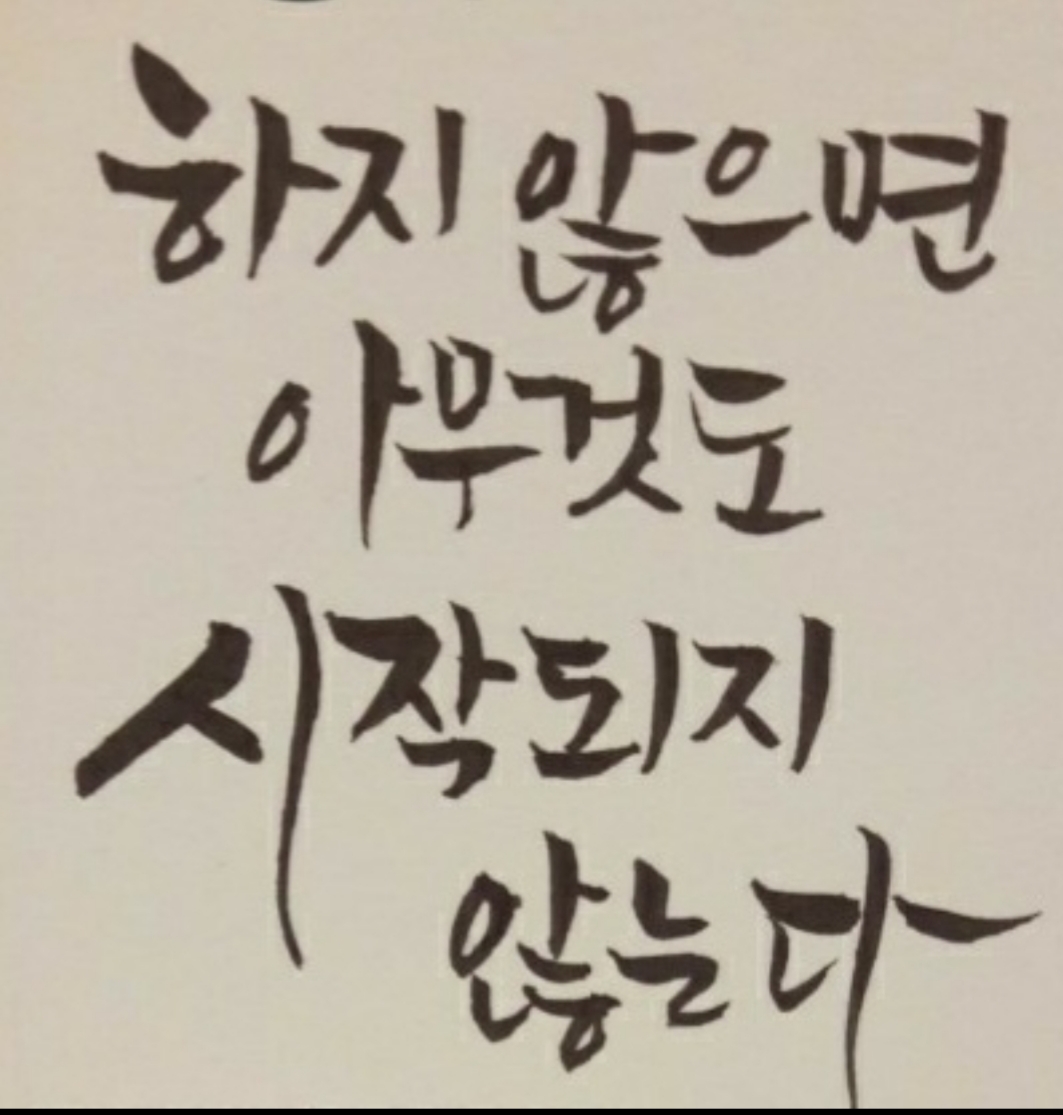 하지 않으면
아무것도
시작되지
않는다